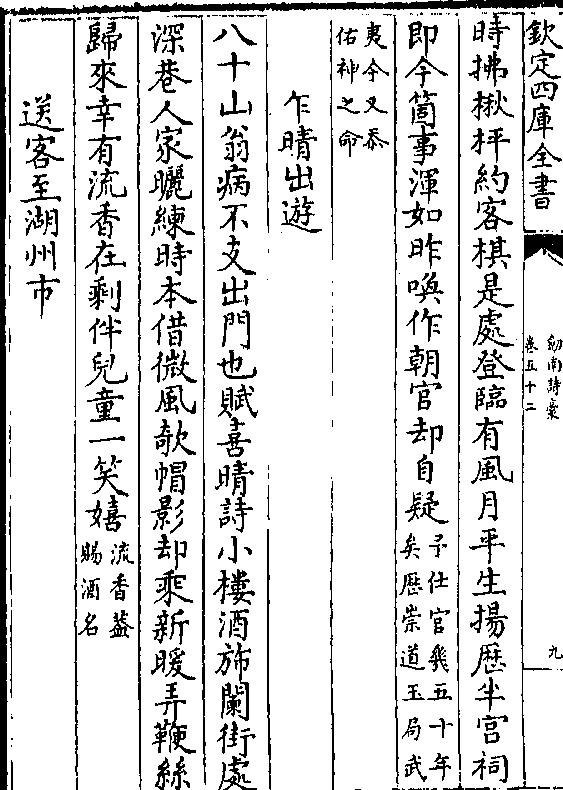 欽定四庫全書
劒南詩藁
卷五十二
九
時拂楸枰約客棋是處登臨有風月平生揚歴半宫祠
即今箇事渾如昨喚作朝官却自疑
予仕宦㡬五十年
矣歴崇道玉局武
夷今又忝
佑神之命
乍晴出遊
八十山翁病不支出門也賦喜晴詩小樓酒斾闌街處
深巷人家曬練時本借微風欹帽影却乘新暖弄鞭絲
歸來幸有流香在剰伴兒童一笑嬉
流香葢
賜酒名
送客至湖州市